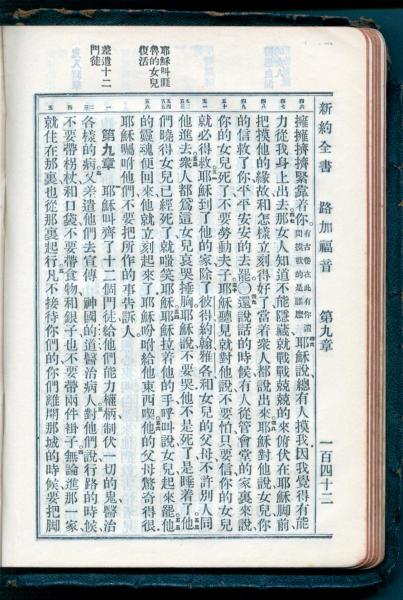 新約全書 路加福音 第九章 一百四十二
擁擁擠擠緊靠着你有古卷在此有你還問摸我的是誰麼耶穌說總有人摸我因我覺得有能
力從我身上出去、那女人知道不能隱藏就戰戰兢兢的來俯伏在耶穌脚前
把摸他的緣故和怎樣立刻得好了當着衆人都說出來、耶穌對他說女兒你
的信救了你平平安安的去罷、〇還說話的時候有人從管會堂的家裏來說
你的女兒死了不要勞動夫子、耶穌聽見就對他說不要怕只要信你的女兒
就必得救、耶穌到了他的家除了彼得約翰雅各和女兒的父母不許別人同
他進去、衆人都爲這女兒哀哭捶胸耶穌說不要哭他不是死了是睡着了、他
們曉得女兒已經死了就嗤笑耶穌、耶穌拉着他的手呼叫說女兒起來罷、他
的靈魂便回來他就立刻起來了耶穌吩咐給他東西喫、他的父母驚奇得很
耶穌囑咐他們不要把所作的事告訴人、
耶穌叫睚
魯的女兒
復活
第九章 耶穌叫齊了十二個門徒給他們能力權柄制伏一切的鬼醫治
差遣十二
門徒
各樣的病、又差遣他們去宣傳 神國的道醫治病人、對他們說行路的時候、
不要帶柺杖和口袋不要帶食物和銀子也不要帶兩件褂子、無論進那一家
就住在那裏也從那裏起行、凡不接待你們的你們離開那城的時候要把脚